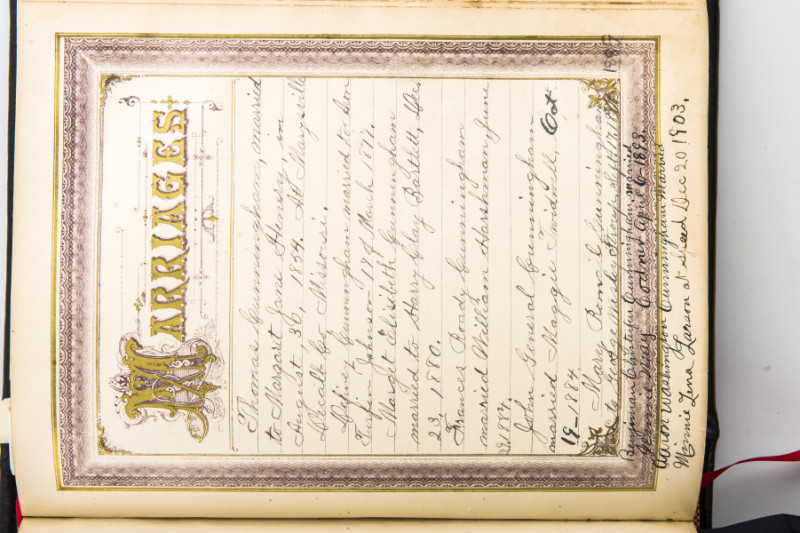 MARRIAGES
Thomas Cunningham, married
to Margaret Jane Hussy, in
August, 30, 1854. At Marysville
Co Missori.
Sidney Cunningham married to
Johnson 17 of March 1877.
Margt Elisabeth Cunningham
married to Harry Clay Bartlett, Dec
23, 1880.
Frances Roady Cunningham
married William Harshman June
John General Cunningham
married Maggie Twidwell, Oct
19 1884.
Mary Rema C Cunningham
to George
Cunningham, Married
May April 6-1893.
Aaron Washington Cunningham Married
Minnie Lena Larson at Dec 20 1903.